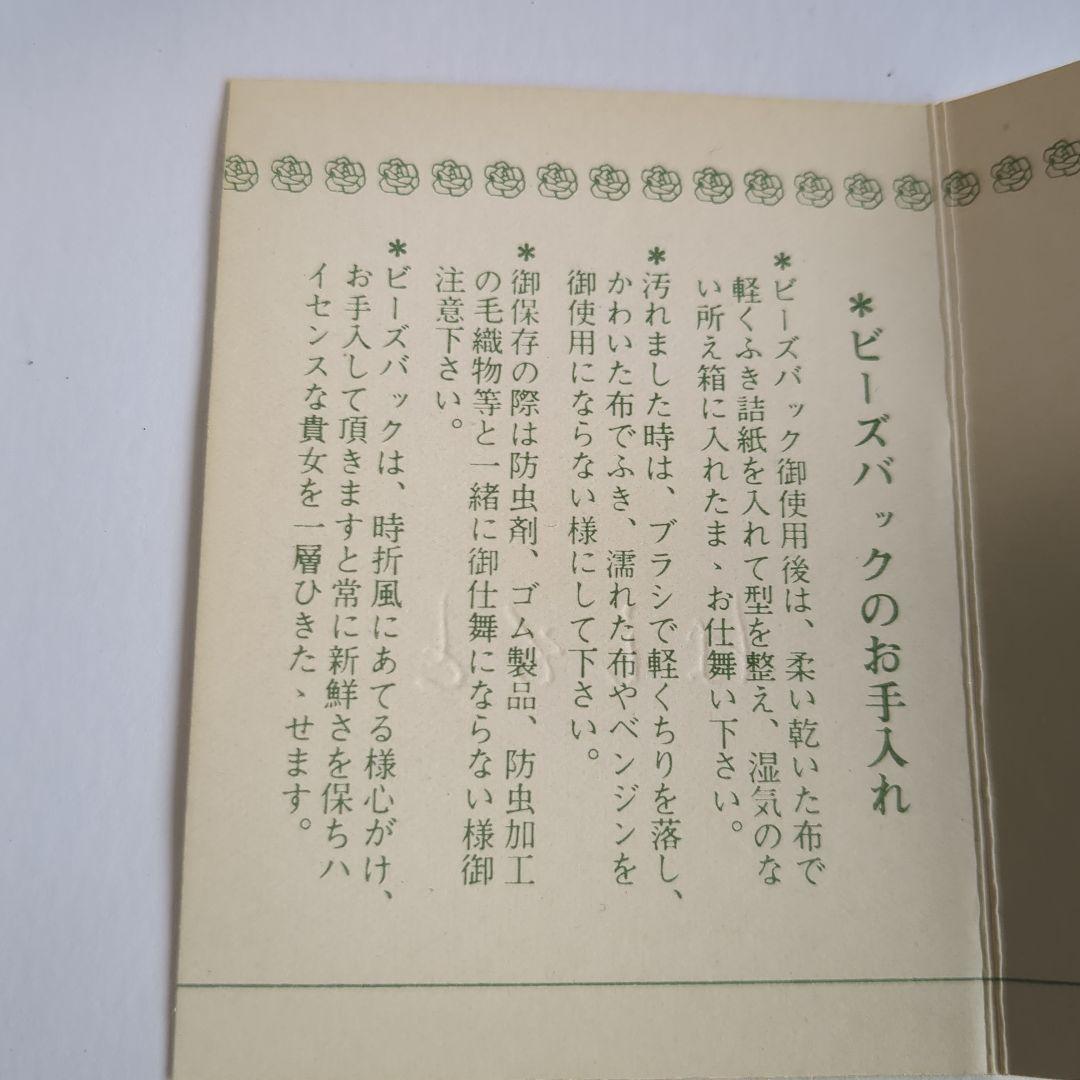 ＊ビーズバックのお手入れ
＊ビーズバック御使用後は、柔い乾いた布で
軽くふき詰紙を入れて型を整え、湿気のな
い所え箱に入れたまゝお仕舞い下さい。
＊汚れました時は、ブラシで軽くちりを落し、
かわいた布でふき、濡れた布やベンジンを
御使用にならない様にして下さい。
＊御保存の際は防虫剤、ゴム製品、防虫加工
の毛織物等と一緒に御仕舞にならない様御
注意下さい。
＊ビーズバックは、時折風にあてる様心がけ、
お手入して頂きますと常に新鮮さを保ちハ
イセンスな貴女を一層ひきたゝせます。